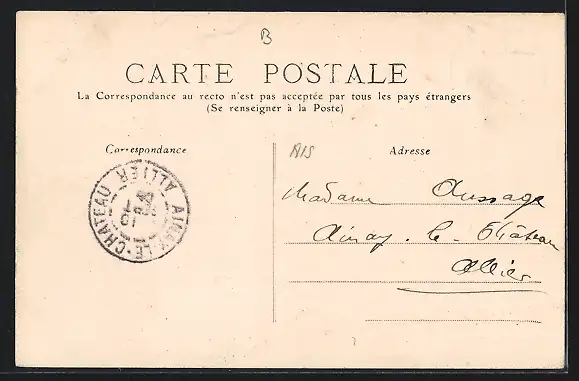 B
CARTE POSTALE
La Correspondance au recto n'est pas acceptée par tous les pays étrangers
(Se renseigner à la Poste)
Correspondance
Adresse
AINAY-LE-CHATEAU
ALLIER
Madame Aussage
Ainay-le-Château
Allier